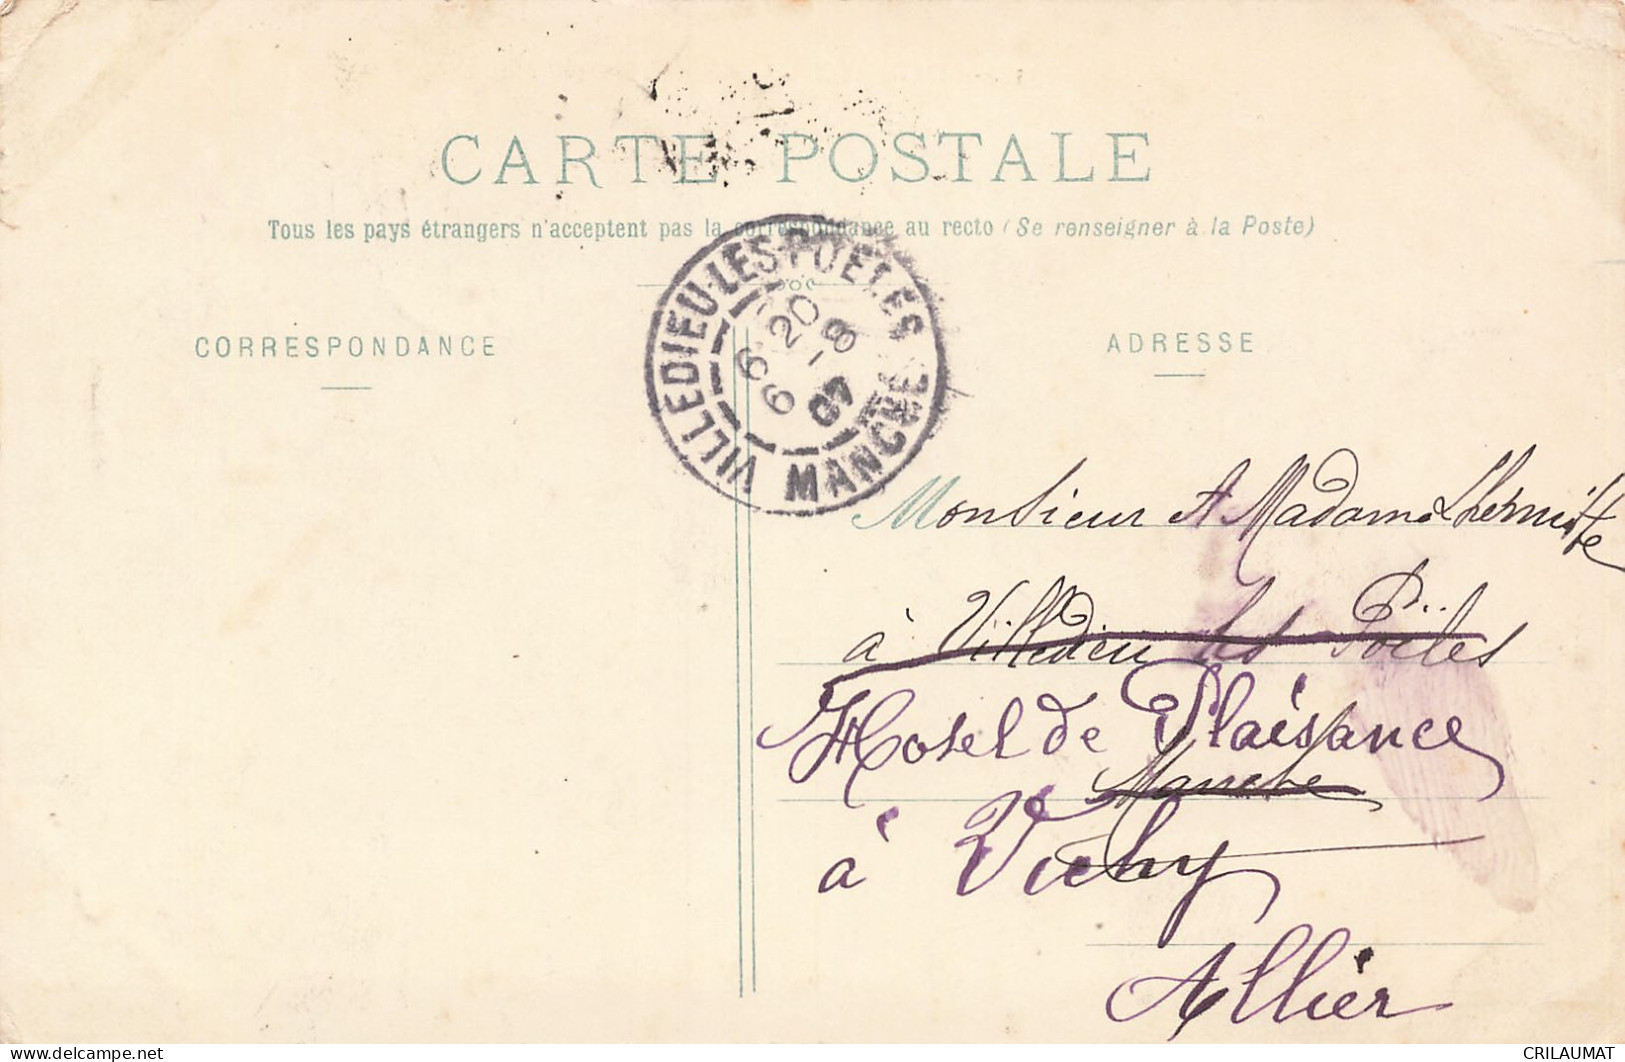 CARTE POSTALE
Tous les pays étrangers n'acceptent pas la correspondance au recto (Se renseigner à la Poste)
CORRESPONDANCE
ADRESSE
VILLEDIEU-LES-POELES
6 20
6 - 8
07
MANCHE
Monsieur et Madame Lhermitte
à Villedieu les Poëles
Hotel de Plaisance
Manche
à Vichy
Allier
delcampe.net
CRILAUMAT